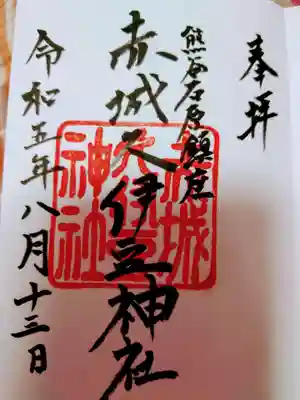 奉拝
熊谷石原鎮座
赤城久伊豆神社
令和五年八月十三日
赤城
久伊豆
神社